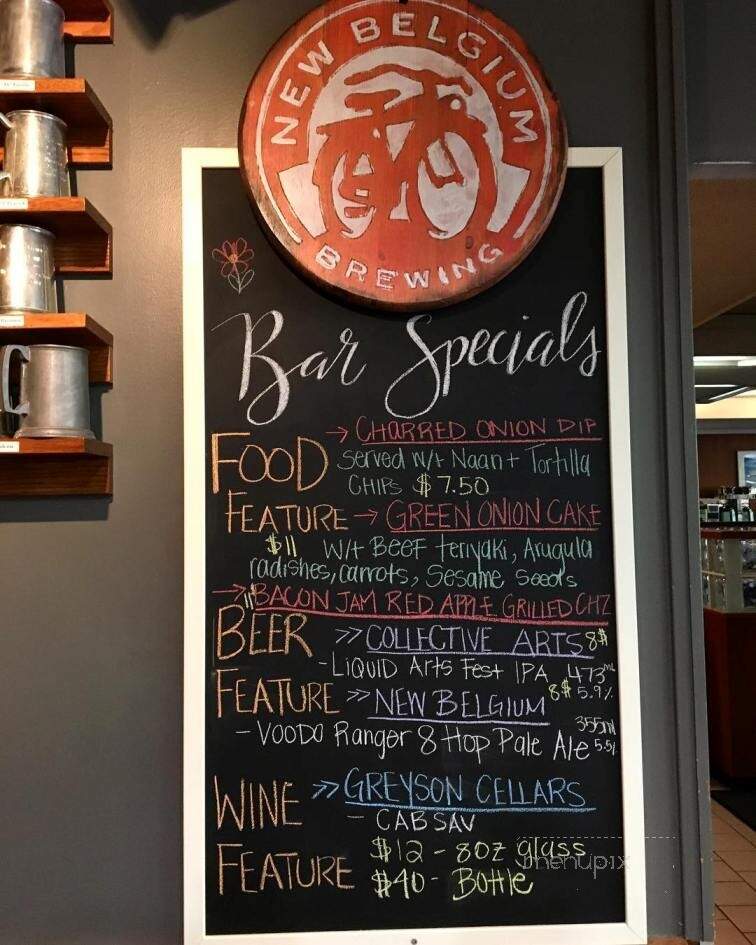 NEW BELGIUM
BREWING
Bar Specials
FOOD → CHARRED ONION DIP
served w/+ Naan + Tortilla
CHIPS $7.50
FEATURE → GREEN ONION CAKE
$11 w/+ BEEF teriyaki, Arugula
radishes, carrots, Sesame Seeds
→ 11 BACON JAM RED APPLE GRILLED CHZ
BEER >> COLLECTIVE ARTS 8$
- LIQUID Arts Fest IPA 473mL
5.9%
FEATURE >> NEW BELGIUM 8$
355ml
- VOODO Ranger 8 Hop Pale Ale 5.5%
WINE >> GREYSON CELLARS
- CAB SAV
FEATURE $12 - 8oz glass
$40 - Bottle
menupix